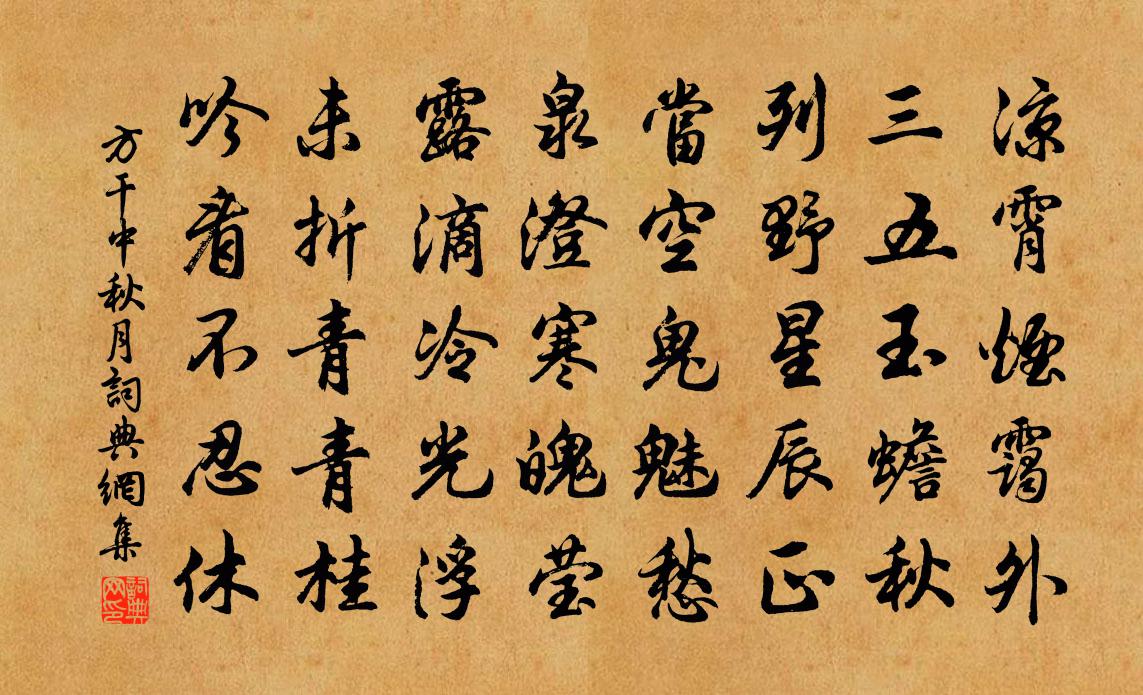 涼霄煙靄外
三五玉蟾秋
列野星辰正
當空鬼魅愁
泉澄寒魄瑩
露滴冷光浮
未折青青桂
吟看不忍休
方干中秋月詞典網集
詞典网印